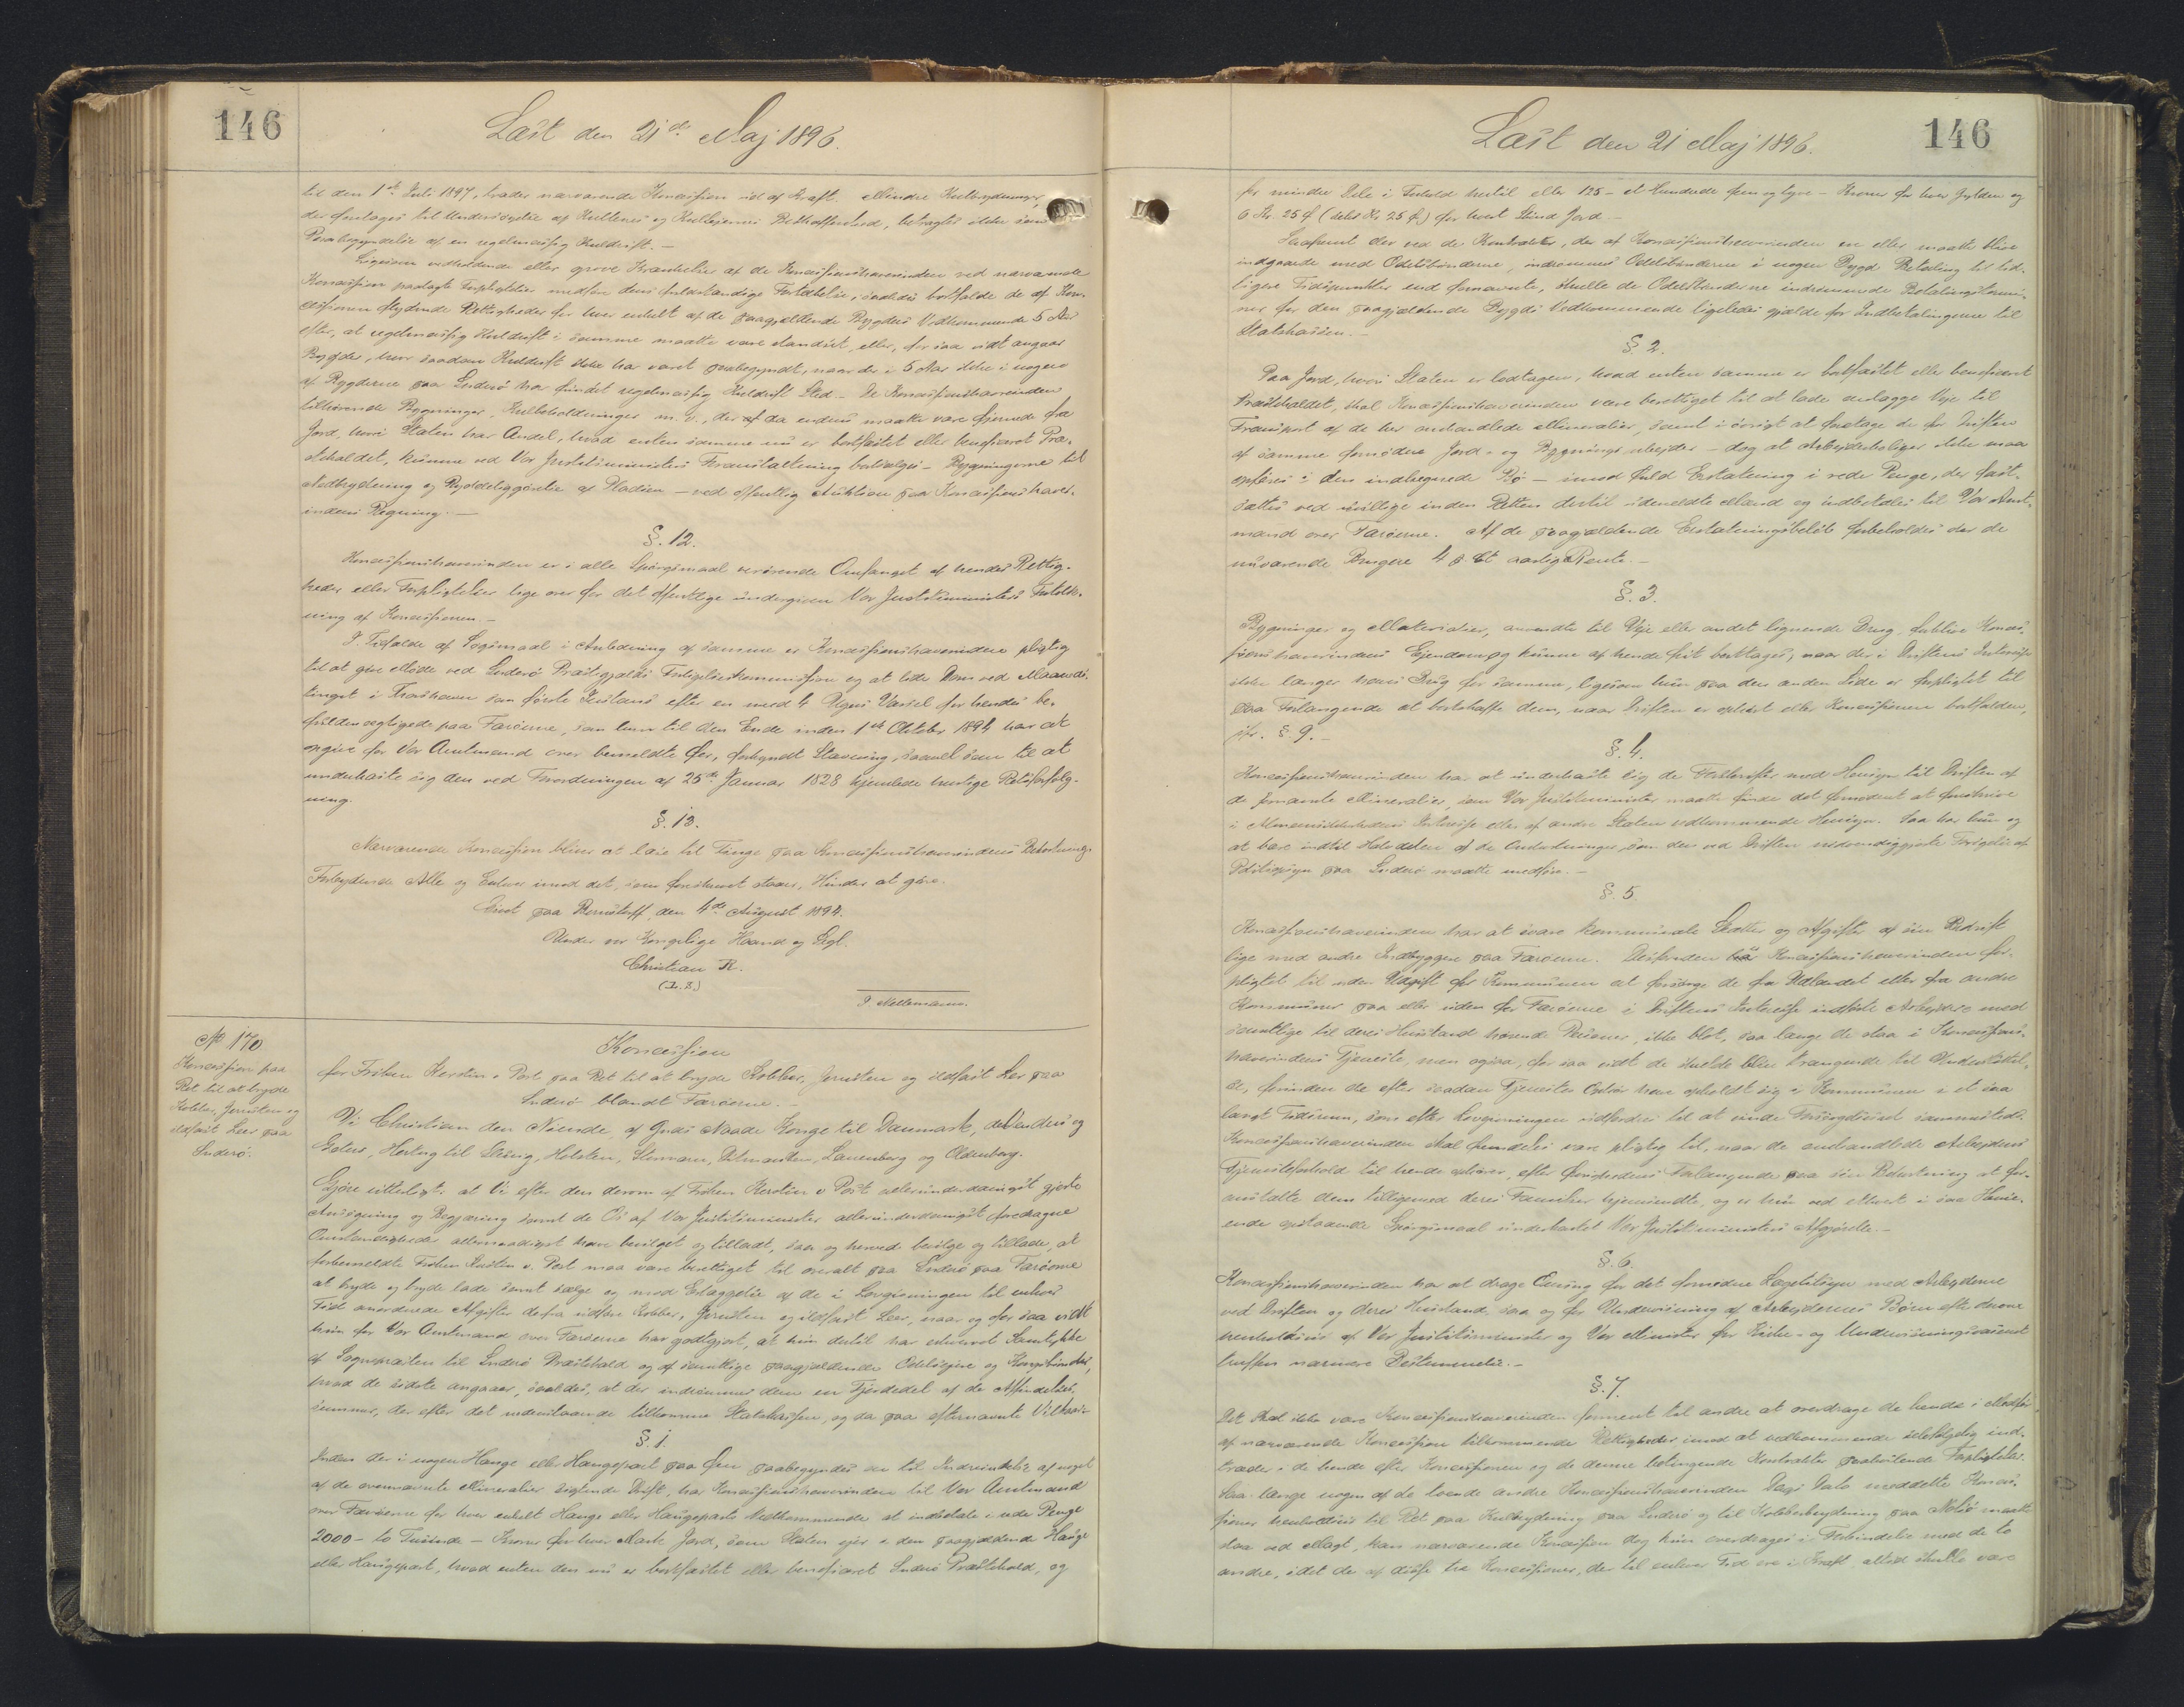 146
Læst den 21de Maj 1896.
til den 1ste Juli 1897, træder nærværende Koncession ud af Kraft. Mindre Kulbrydninger,
der foretages til Undersøgelse af Kullenes og Kullejernes Beskaffenhed, betragtes ikke som
Paabegyndelse af en regelmæssig Kuldrift.—
Ligesom vedholdende eller grove Krænkelser af de Koncessionshaverinden ved nærværende
Koncession paalagte Forpligtelser medføre dens fuldstændige Fortabelse, saaledes bortfalde de af Kon-
cessionen flydende Rettigheder for hver enkelt af de paagjældende Bygders Vedkommende 5 Aar
efter, at regelmæssig Kuldrift i samme maatte være standset, eller, for saa vidt angaar
Bygder, hvor saadan Kuldrift ikke har været paabegyndt, naar der i 5 Aar ikke i nogen
af Bygderne paa Suderø har fundet regelmæssig Kuldrift Sted.— De Koncessionshaverinden
tilhørende Bygninger, Kulbeholdninger m. v., der ej da endnu maatte være fjernede fra
Jord, hvori Staten har Andel, hvad enten samme nu er bortfæstet eller beneficeret Præ-
stekaldet, kunne ved Vor Justitsministers Foranstaltning bortsælges — Bygningerne til
Nedbrydning og Ryddeliggørelse af Pladsen — ved offentlig Auktion paa Koncessionshaver-
indens Regning.—
§. 12.
Koncessionshaverinden er i alle Spørgsmaal vedrørende Omfanget af hendes Rettig-
heder eller Forpligtelser lige over for det offentlige undergiven Vor Justitsministers Fortolk-
ning af Koncessionen.—
I Tilfælde af Søgsmaal i Anledning af samme er Koncessionshaverinden pligtig
til at give Møde ved Suderø Præstegjælds Forligelseskommission og at lide Dom ved Maaneds-
tinget i Thorshavn som første Instans efter en med 4 Ugers Varsel for hendes be-
fuldmægtigede paa Færøerne, som hun til den Ende inden 1ste Oktober 1894 har at
opgive for Vor Amtmand over bemeldte Øer, forkyndt Stævning, saavel som til at
underkaste sig den ved Forordningen af 25de Januar 1828 hjemlede hurtige Retsforfølg-
ning.
§. 13.
Nærværende Koncession bliver at læse til Tinge paa Koncessionshaverindens Bekostning.
Forbydende Alle og Enhver imod det, som foreskrevet staar, Hinder at gøre.
Givet paa Bernstorff, den 4de August 1894.
Under vor Kongelige Haand og Segl.
Christian R.
(L. S.)
J. Nellemann.
No 170.
Koncession paa
Ret til at bryde
Kobber, Jernsten og
ildfast Leer paa
Suderø.
Koncession
for Frøken Kerstin v. Post paa Ret til at bryde Kobber, Jernsten og ildfast Ler paa
Suderø blandt Færøerne.—
Vi Christian den Niende, af Guds Naade Konge til Danmark, de Venders og
Goters, Hertug til Slesvig, Holsten, Stormarn, Ditmarsken, Lauenborg og Oldenborg.
Gjøre vitterligt: at Vi efter den derom af Frøken Kerstin v. Post allerunderdanigst gjorte
Ansøgning og Begjæring samt de Os af Vor Justitsminister allerunderdanigst foredragne
Omstændigheder allernaadigst have bevilget og tilladt, saa og herved bevilge og tillade, at
forbemeldte Frøken Kerstin v. Post maa være berettiget til overalt paa Suderø paa Færøerne
at bryde og bryde lade samt sælge og mod Erlæggelse af de i Lovgivningen til enhver
Tid anordnede Afgifter derfra udføre Kobber, Jernsten og ildfast Leer, naar og for saa vidt
hun for Vor Amtmand over Færøerne har godtgjort, at hun dertil har erhvervet Samtykke
af Sognepræsten til Suderø Præstekald og af samtlige paagjældende Odelsejere og Kongsbønder,
hvad de sidste angaaer, saaledes, at der indrømmes dem en Fjerdedel af de Affindelses-
summer, der efter det nedenstaaende tilkomme Statskassen, og da paa efternævnte Vilkaar:
§. 1.
Inden der i nogen Hauge eller Haugepart paa Øen paabegyndes en til Indvindelse af noget
af de ovennævnte Mineralier sigtende Drift, har Koncessionshaverinden til Vor Amtmand
over Færøerne for hver enkelt Hauge eller Haugeparts Vedkommende at indbetale i rede Penge
2000 — to Tusinde — Kroner for hver Mark Jord, som Staten ejer i den paagjældende Hauge
eller Haugepart, hvad enten den nu er bortfæstet eller beneficeret Suderø Præstekald, og
Læst den 21 Maj 1896.
146
for mindre Dele i Forhold hertil eller 125 — et Hundrede fem og tyve — Kroner for hver Gylden og
6 Kr. 25 Ø for hvert Skind Jord.—
Saafremt der ved de Kontrakter, der af Koncessionshaverinden ere eller maatte blive
indgaaede med Odelsbønderne, indrømmes Odelsbønderne i nogen Bygd Betaling til tid-
ligere Tidspunkter end fornævnte, skulle de Odelsbønderne indrømmede Betalingstermi-
ner for den paagjældende Bygds Vedkommende ligeledes gjælde for Indbetalingerne til
Statskassen.—
§. 2.
Paa Jord, hvori Staten er lodtagen, hvad enten samme er bortfæstet eller beneficeret
Præstekaldet, skal Koncessionshaverinden være berettiget til at lade anlægge Veje til
Transport af de her omhandlede Mineralier, samt i øvrigt at foretage de for Driften
af samme fornødne Jord- og Bygningsarbejder — dog at Arbejderboliger ikke maa
opføres i den indhegnede Bø — imod fuld Erstatning i rede Penge, der fast-
sættes ved uvillige inden Retten dertil udmeldte Mænd og indbetales til Vor Amt-
mand over Færøerne. Af de paagjældende Erstatningsbeløb forbeholdes der de
nuværende Brugere 4 p. Ct. aarlig Rente.—
§. 3.
Bygninger og Materialier, anvendte til Veje eller andet lignende Brug, forblive Konces-
sionshaverindens Ejendom og kunne af hende frit borttages, naar der i Driftens Interesse
ikke længer haves Brug for samme, ligesom hun paa den anden Side er forpligtet til
paa Forlangende at bortskaffe dem, naar Driften er ophørt eller Koncessionen bortfalden,
jfr. §. 9.—
§. 4.
Koncessionshaverinden har at underkaste sig de Forskrifter med Hensyn til Driften af
de fornævnte Mineralier, som Vor Justitsminister maatte finde det fornødent at foreskrive
i Almensikkerhedens Interesse eller af andre Staten vedkommende Hensyn. Saa har hun og
at bære indtil Halvdelen af de Omkostninger, som den ved Driften nødvendiggjorte Forøgelse af
Politiopsyn paa Suderø maatte medføre.—
§. 5.
Koncessionshaverinden har at svare kommunale Skatter og Afgifter af sin Bedrift
lige med andre Indbyggere paa Færøerne. Desforuden er Koncessionshaverinden for-
pligtet til uden Udgift for Kommunen at forsørge de fra Udlandet eller fra andre
Kommuner paa eller uden for Færøerne i Driftens Interesse indførte Arbejdere med
samtlige til deres Husstand hørende Personer, ikke blot, saa længe de staa i Koncessions-
haverindens Tjeneste, men ogsaa, for saa vidt de skulde blive trængende til Understøttel-
se, forinden de efter saadan Tjenestes Ophør have opholdt sig i Kommunen i et saa
langt Tidsrum, som efter Lovgivningen udfordres til at vinde Forsørgelsesret sammesteds.
Koncessionshaverinden skal fremdeles være pligtig til, naar de omhandlede Arbejderes
Tjenesteforhold til hende ophører, efter Øvrighedens Forlangende paa sin Bekostning at for-
anstalte dem tilligemed deres Familier hjemsendte, og er hun ved ethvert i saa Hense-
ende opstaaende Spørgsmaal underkastet Vor Justitsministers Afgjørelse.—
§. 6.
Koncessionshaverinden har at drage Omsorg for det fornødne Lægetilsyn med Arbejderne
ved Driften og deres Husstand, saa og for Undervisning af Arbejdernes Børn efter derom
henholdsvis af Vor Justitsminister og Vor Minister for Kirke- og Undervisningsvæsenet
truffen nærmere Bestemmelse.—
§. 7.
Det skal ikke være Koncessionshaverinden formeent til andre at overdrage de hende i Medfør
af nærværende Koncession tilkommende Rettigheder imod at vedkommende selvfølgelig ind-
træder i de hende efter Koncessionen og de denne betingende Kontrakter paahvilende Forpligtelser.
Saa længe nogen af de tvende andre Koncessionshaverinden Dags Dato meddelte Konces-
sioner henholdsvis til Ret paa Kulbrydning paa Suderø og til Kobberbrydning paa Nolsø maatte
staa ved Magt, kan nærværende Koncession dog kun overdrages i Forbindelse med de to
andre, idet de af disse tre Koncessioner, der til enhver Tid ere i Kraft, altid skulle være